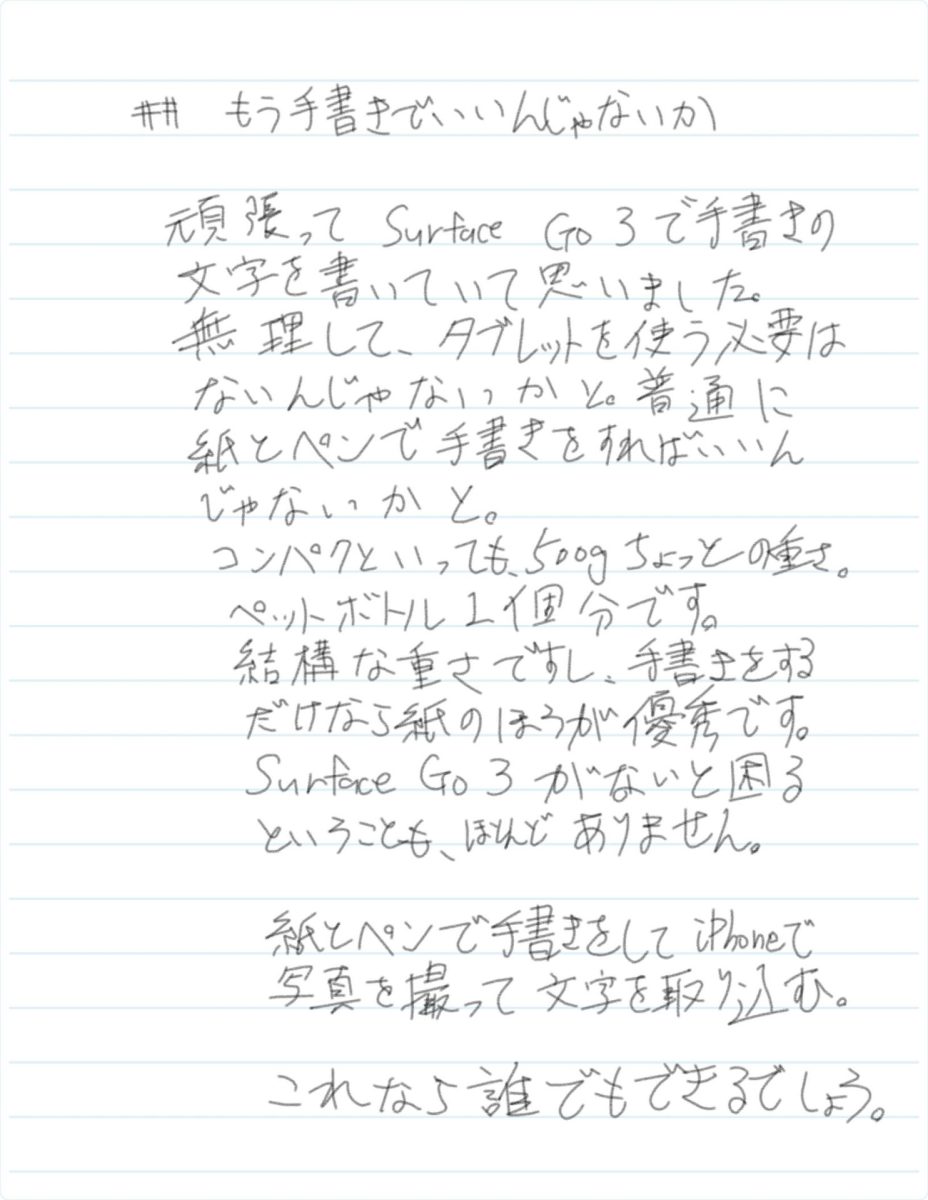 ## もう手書きでいいんじゃないか
頑張って Surface Go 3で手書きの
文字を書いていて思いました。
無理して、タブレットを使う必要は
ないんじゃないかと。普通に
紙とペンで手書きをすればいいん
じゃないかと。
コンパクといっても、500gちょっとの重さ。
ペットボトル1個分です。
結構な重さですし、手書きをする
だけなら紙のほうが優秀です。
Surface Go 3 がないと困る
ということも、ほとんどありません。
紙とペンで手書きをしてiPhoneで
写真を撮って文字を取り込む。
これなら誰でもできるでしょう。